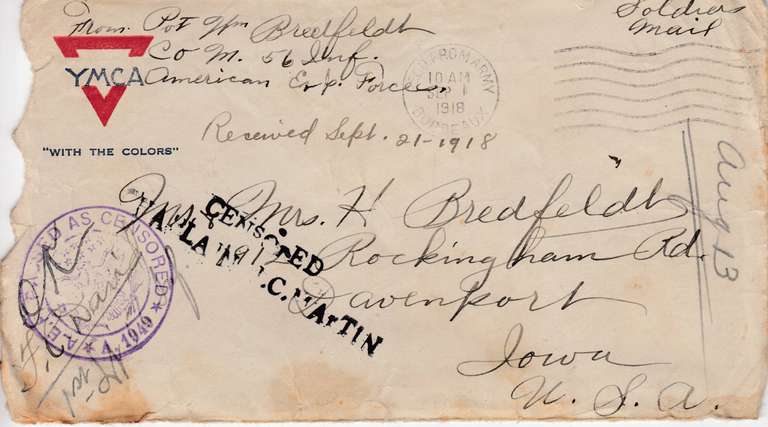 From. Pvt Wm Bredfeldt
Co M. 56 Inf.
American Exp. Forces.
Soldiers
Mail
YMCA
"WITH THE COLORS"
FROM ARMY
10 AM
SEP 1
1918
BORDEAUX
Received Sept. 21-1918
Aug 13
Mr & Mrs. H Bredfeldt
Rockingham Rd.
Davenport
Iowa
U. S. A.
CENSORED
MARTIN
AS CENSORED
A. 1949
OK
1st